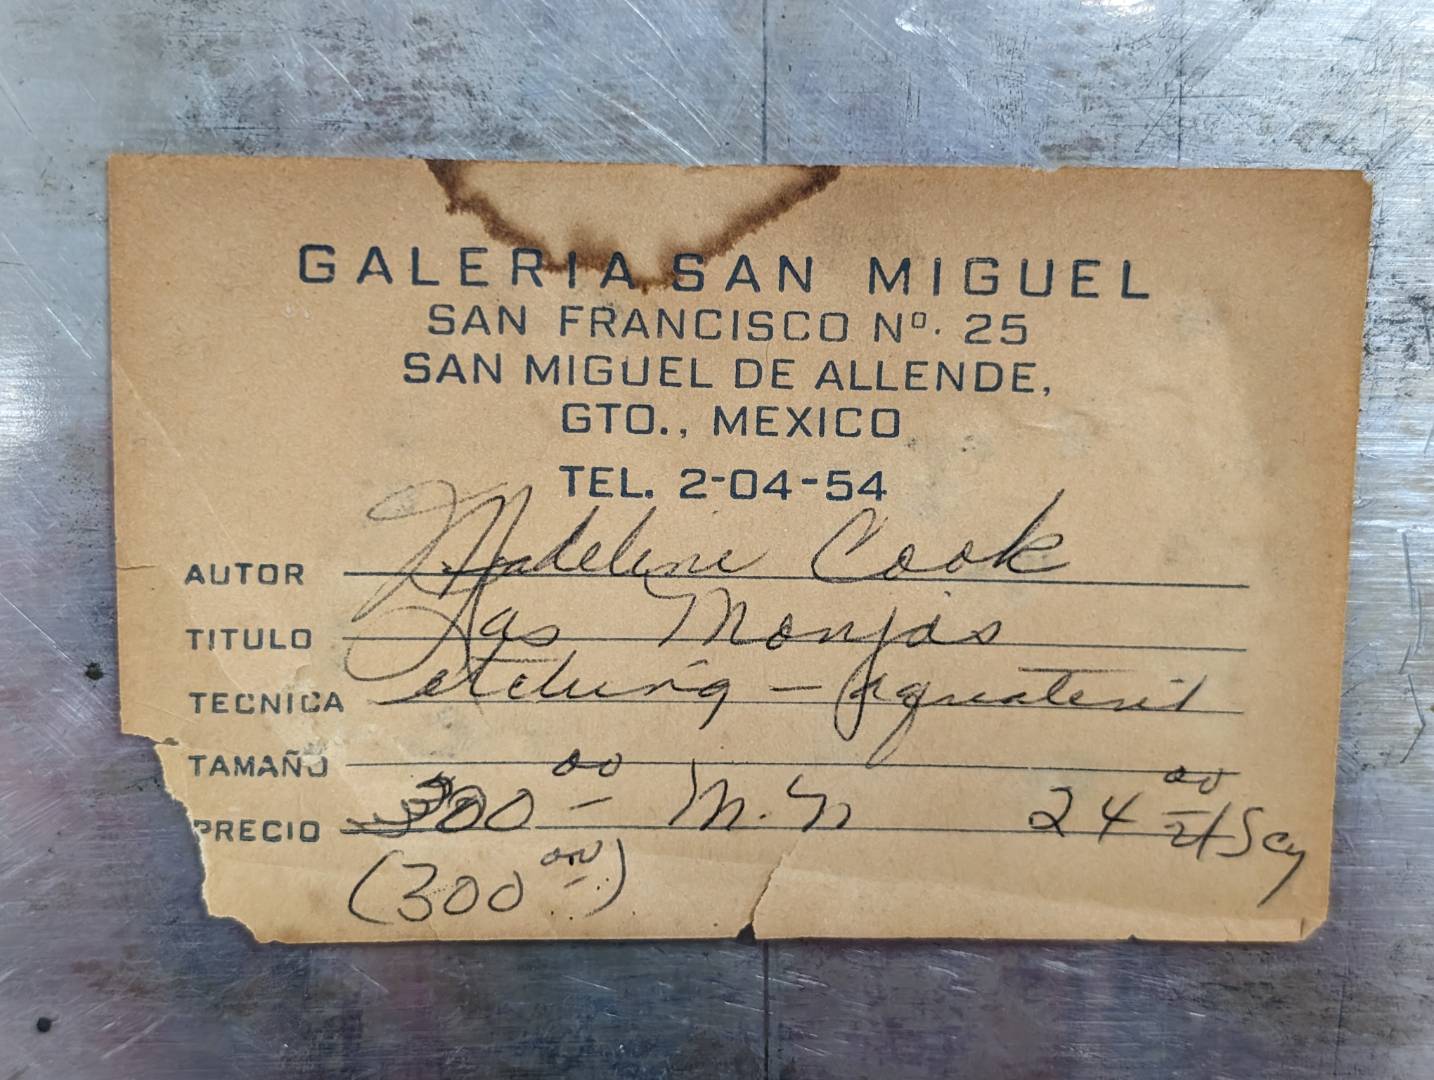 GALERIA SAN MIGUEL
SAN FRANCISCO Nº. 25
SAN MIGUEL DE ALLENDE,
GTO., MEXICO
TEL. 2-04-54
AUTOR Madeline Cook
TITULO Las Monjas
TECNICA etching - Aquatint
TAMAÑO
PRECIO 300 00 M.N 24 00
(300 00)